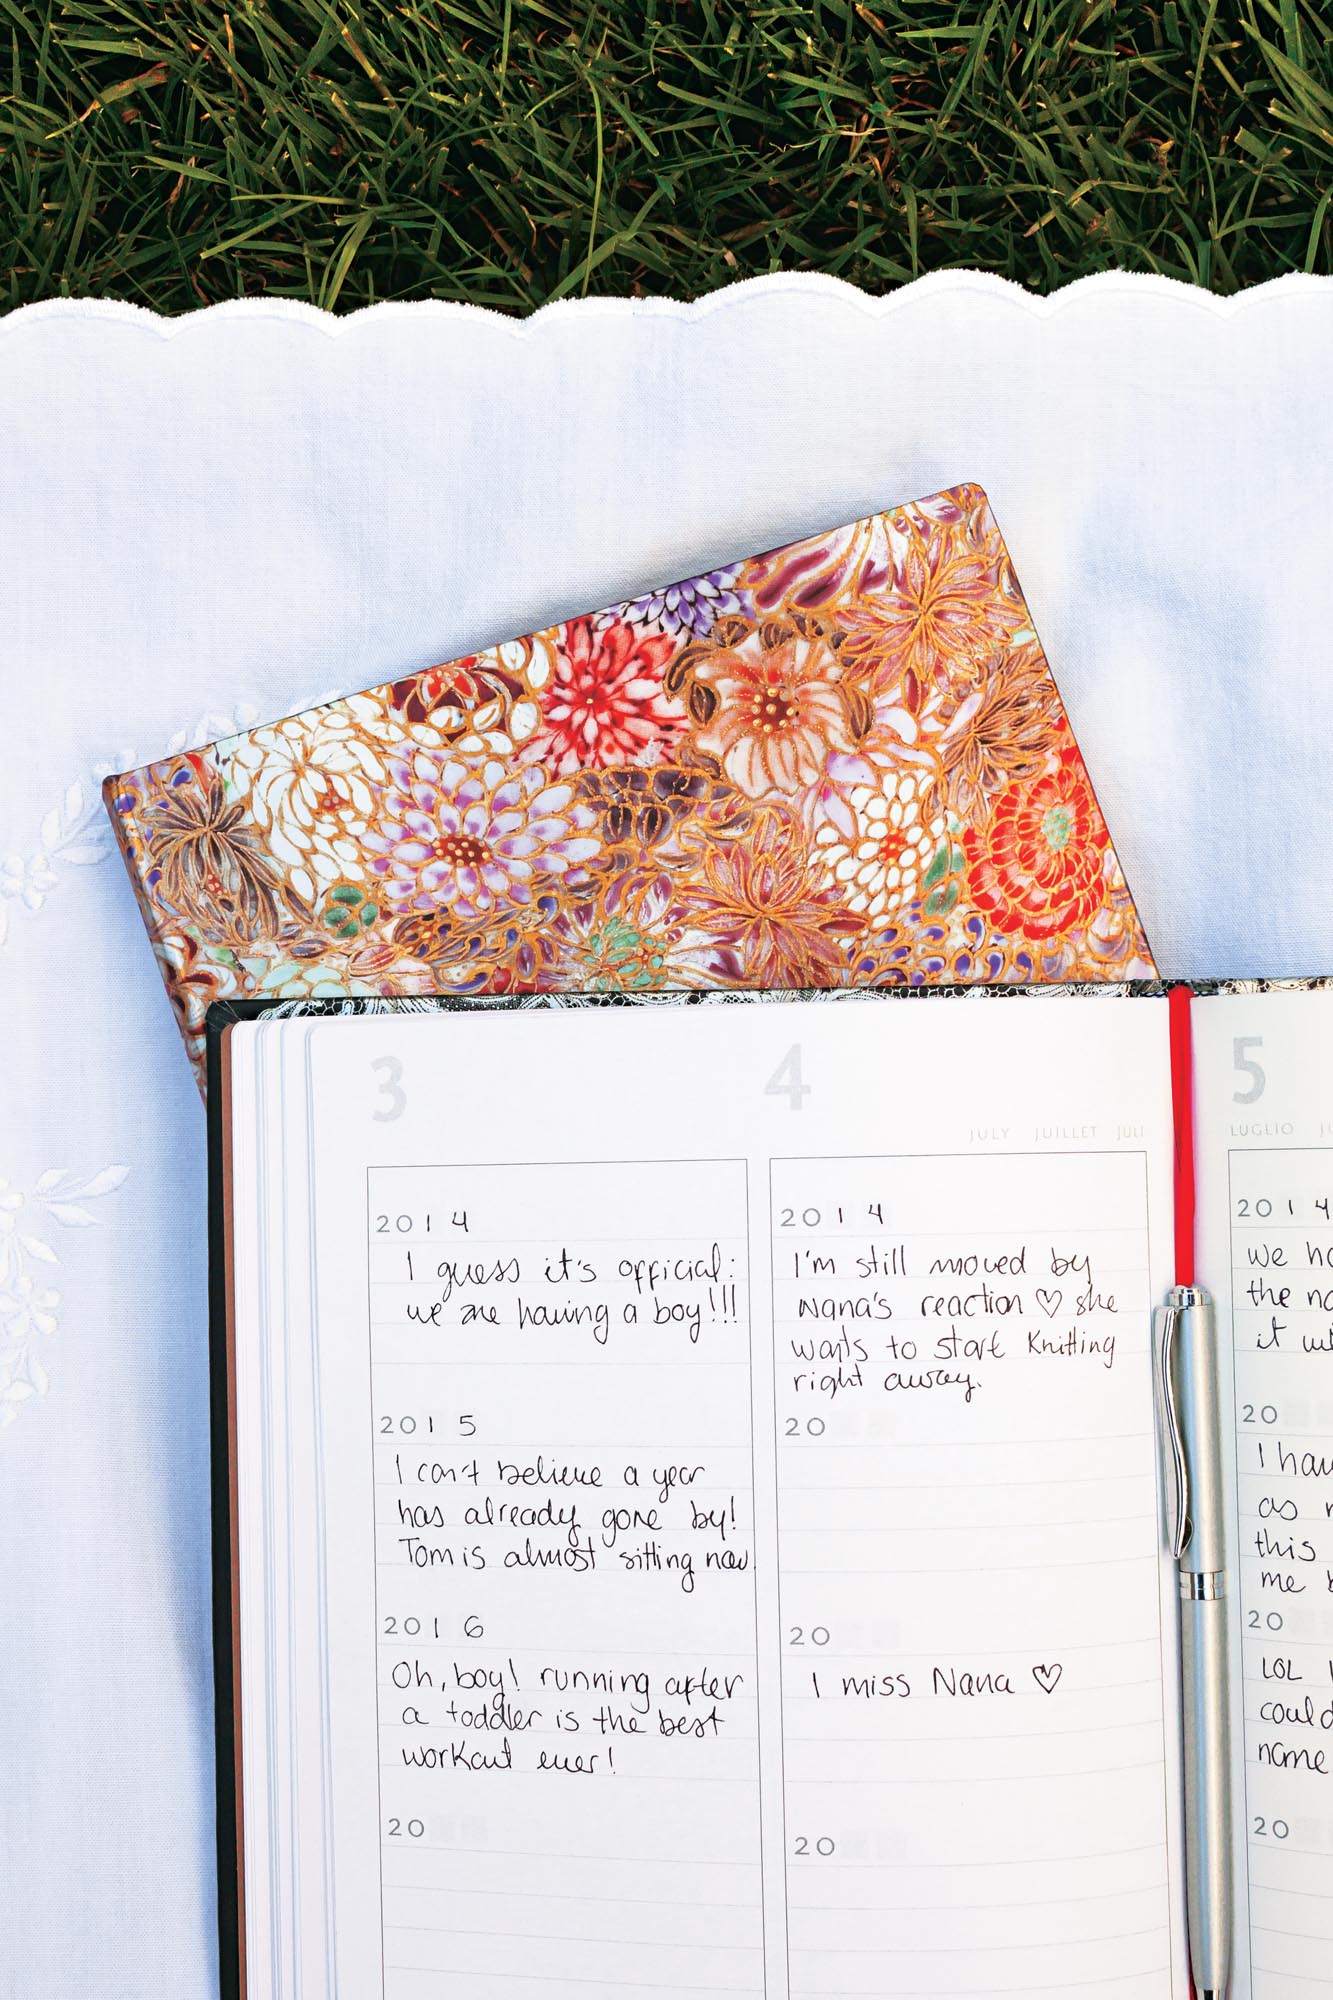 3
2014
I guess it's official:
we are having a boy!!!
2015
I can't believe a year
has already gone by!
Tom is almost sitting now.
2016
Oh, boy! running after
a toddler is the best
workout ever!
20
4
JULY JUILLET JULI
2014
I'm still moved by
Nana's reaction ♡ she
wants to start knitting
right away.
20
20
I miss Nana ♡
20
5
LUGLIO
2014
we
the
it
20
I
as
this
me
20
LOL
could
name
20